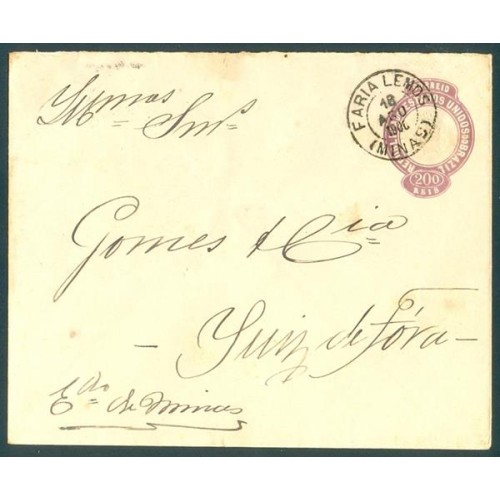 Illmos Snrs
Gomes & Cia
- Juiz de Fóra -
Edo de Minas
FARIA LEMOS
18
AGO
(MINAS)
CORREIO
ESTADOS UNIDOS DO BRAZIL
200
REIS